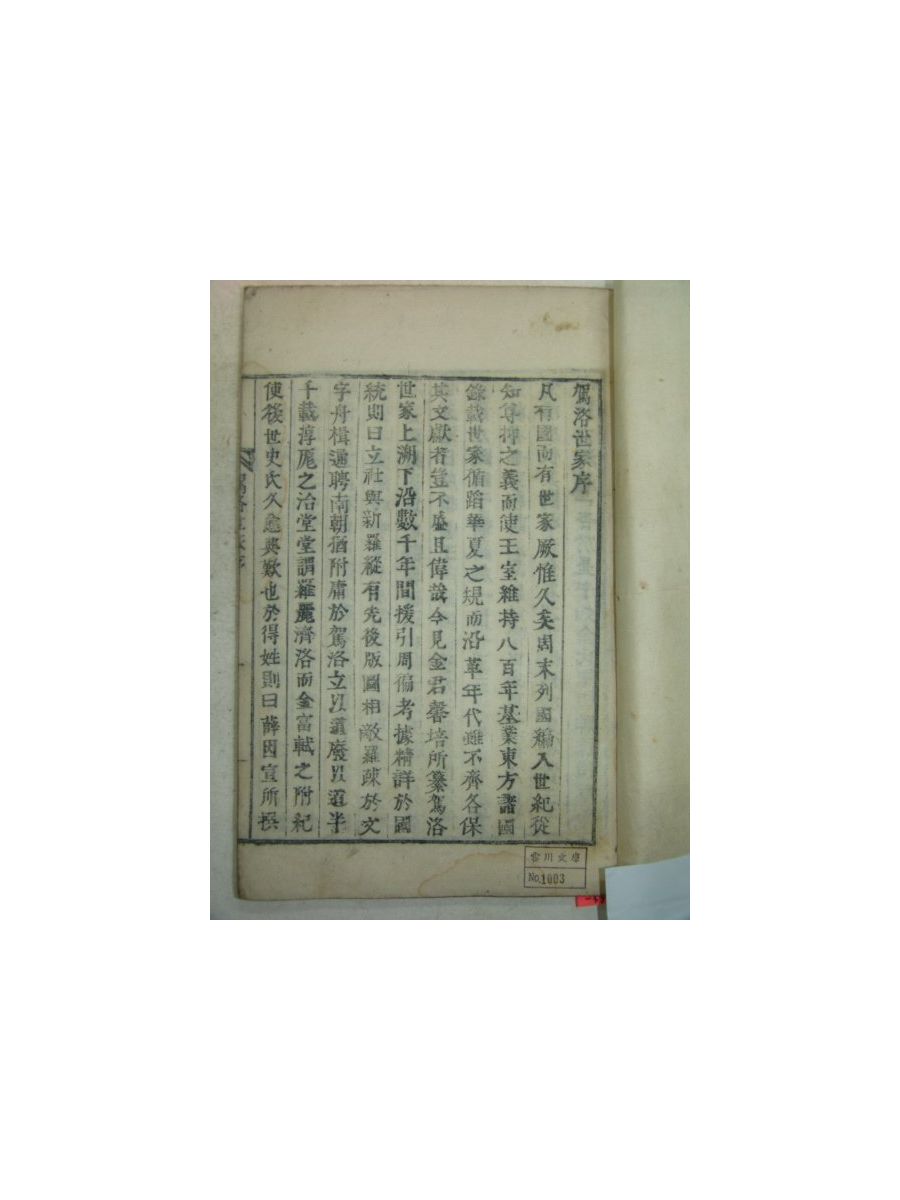 駕洛世家序
凡有國而有世家厥惟久矣周末列國編入世紀從
知尊抑之義而使王室維持八百年基業東方諸國
錄載世家循蹈華夏之規而沿革年代雖不齊各保
其文獻者豈不盛且偉哉今見金君馨培所纂駕洛
世家上溯下沿數千年間援引周徧考據精詳於國
統則曰立社與新羅縱有先後版圖相敵羅疎於文
字舟楫通聘南朝猶附庸於駕洛立以道廢以道半
千載淳厖之治堂堂謂羅麗濟洛而金富軾之附紀
使後世史氏久愈興歎也於得姓則曰薛因宣所撰
駕洛世家序
雷川文庫
No.1003